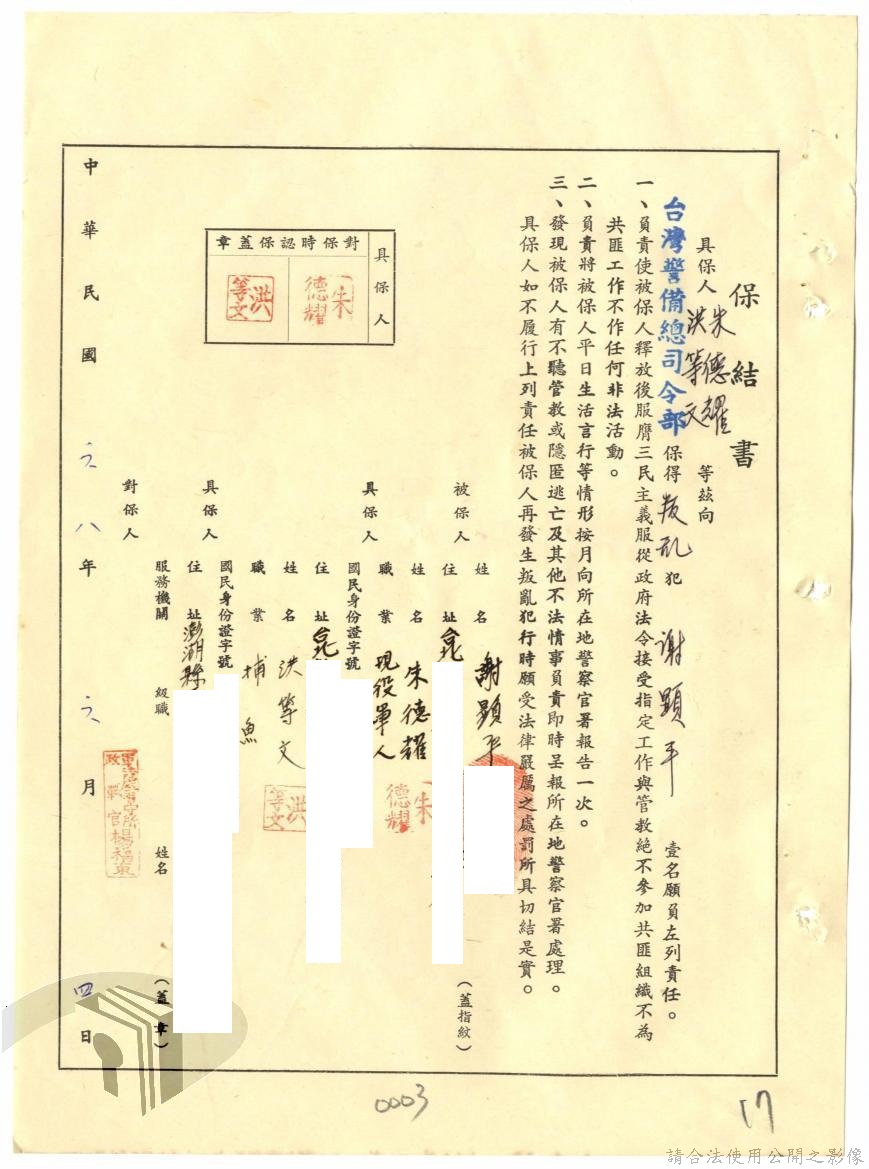 保結書
具保人 朱德耀 洪等文 等茲向
台灣警備總司令部保得叛乱犯謝顯平壹名願負左列責任。
一、負責使被保人釋放後服膺三民主義服從政府法令接受指定工作與管教絶不參加共匪組織不為
共匪工作不作任何非法活動。
二、負責將被保人平日生活言行等情形按月向所在地警察官署報告一次。
三、發現被保人有不聽管教或隱匿逃亡及其他不法情事負責即時呈報所在地警察官署處理。
具保人如不履行上列責任被保人再發生叛亂犯行時願受法律嚴厲之處罰所具切結是實。
被保人 姓名 謝顯平
住址 (蓋指紋)
具保人 姓名 朱德耀 朱德耀
職業 現役軍人
國民身份證字號
住址
具保人 姓名 洪等文 洪等文
職業 捕魚
國民身份證字號
住址 澎湖縣
對保人 服務機關 級職 姓名 (蓋章)
具保人
對保時認保蓋章
朱德耀
洪等文
官楊福東
中華民國六八年六月四日
0003
17
請合法使用公開之影像